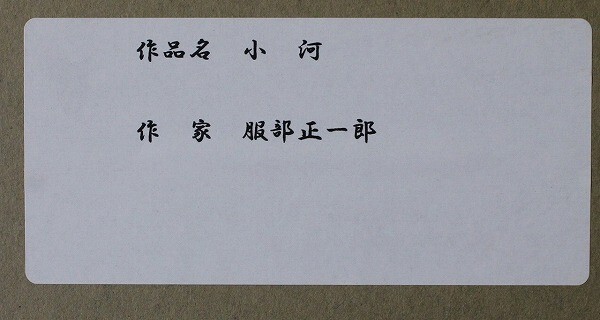 作品名　小　河
作　家　服部正一郎